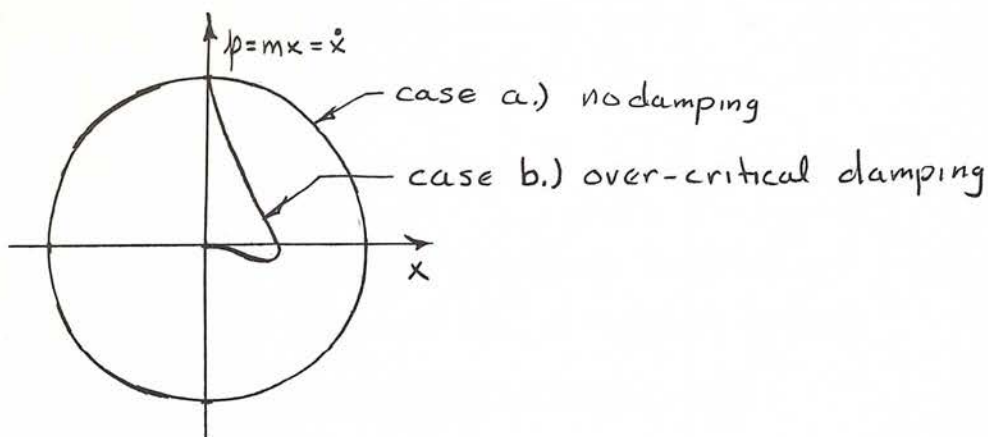 p=mx=ẋ
case a.) no damping
case b.) over-critical damping
x